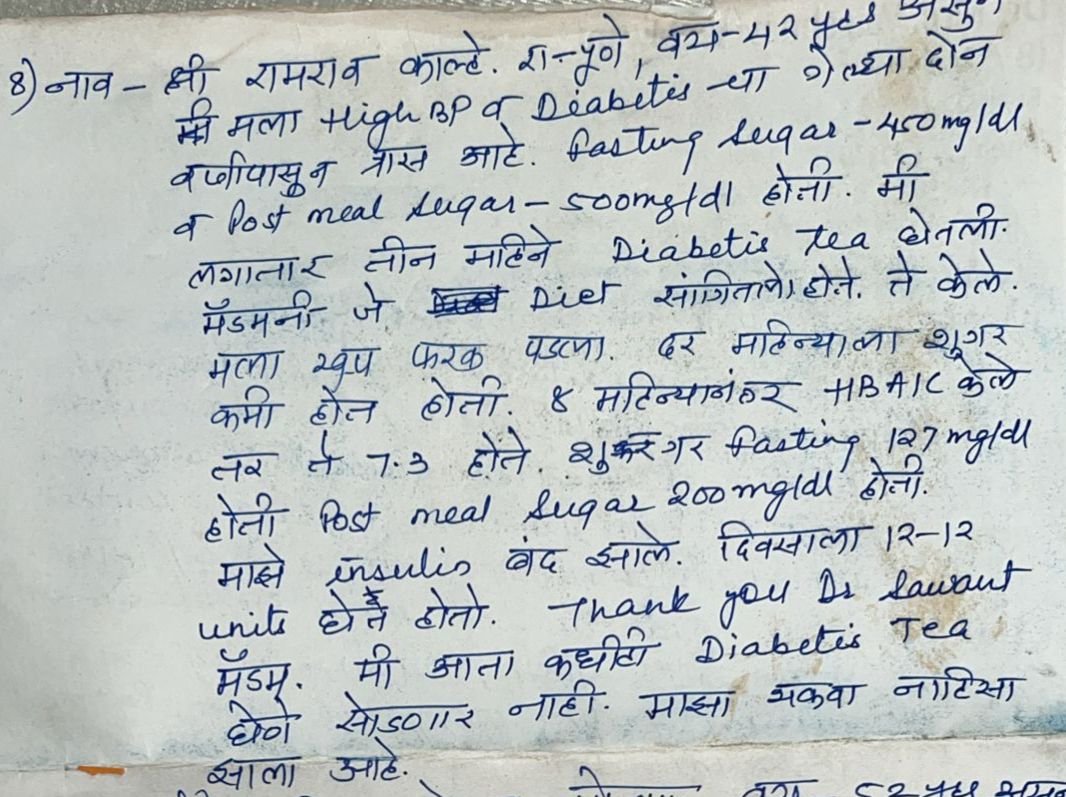 8) नाव - श्री रामराव काल्हे. रा-पूणे, वय-42 yrs असुन
मला High BP व Diabetis चा गेल्या दोन
वर्षापासुन त्रास आहे. Fasting Sugar - 450mg/dl
व Post meal Sugar - 500mg/dl होती. मी
लगातार तीन महिने Diabetis Tea घेतली.
मॅडमनी जे Diet सांगितले होते. ते केले.
मला खूप फरक पडला. दर महिन्याला शुगर
कमी होत होती. ४ महिन्यानंतर HBA1C केले
तर ते 7.3 होते. शुगर Fasting 127 mg/dl
होती Post meal Sugar 200mg/dl होती.
माझे insulin बंद झाले. दिवसाला 12-12
units घेत होतो. Thank you Dr Sawant
मॅडम. मी आता कधीही Diabetis Tea
घेणे सोडणार नाही. माझा थकवा नाहिसा
झाला आहे.
वय 52 yrs असुन